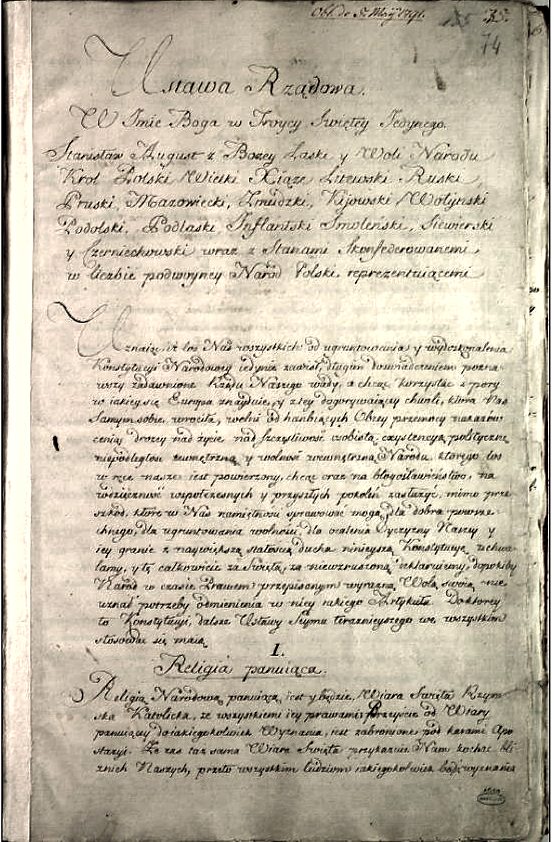 Obl. de 5. Maij 1791.
35.
74
Ustawa Rządowa.
W Imie Boga w Troycy Swiętey Jedynego.
Stanisław August z Bożey Łaski y Woli Narodu
Krol Polski Wielki Xiąże Litewski Ruski
Pruski, Mazowiecki, Zmudzki, Kijowski Wołynski
Podolski, Podlaski Inflantski Smoleński, Siewierski
y Czerniechowski wraz z Stanami Skonfederowanemi,
w liczbie podwoyney Naród Polski reprezentuiącemi
Uznaiąc, iż los Nas wszystkich od ugruntowania y wydoskonalenia
Konstytucyi Narodowey iedynie zawisł, długim doswiadczeniem pozna-
wszy zadawnione Rządu Naszego wady, a chcąc korzystać z pory
w iakiey się Europa znayduie, y z tey dogorywaiącey chwili, ktora Nas
samym sobie wrociła, wolni od hanbiących Obcey przemocy nakazów
ceniąc drozey nad życie nad szczęsliwość osobistą exystencyą polityczną
niepodległosć zewnętrzną y wolność wewnętrzną Narodu, którego los
w ręce nasze iest powierzony, chcąc oraz na błogosławieństwo, na
wdzięczność współczesnych y przyszłych pokoleń zasłużyć, mimo prze-
szkód, które w Nas namiętności sprawować mogą, dla dobra powsze-
chnego, dla ugruntowania wolności, dla ocalenia Oyczyzny Naszey y
iey granic z naywiększą stałością ducha ninieyszą Konstytucyę uchwa-
lamy, y tę całkowicie za Swiętą, za niewzruszoną deklaruiemy, dopokiby
Naród w czasie Prawem przepisanym wyrazną Wolą swoią nie
uznał potrzeby odmienienia w niey iakiego Artykułu. Do ktorey
to Konstytucyi, dalsze Ustawy Seymu teraznieyszego we wszystkim
stosować się maią
I.
Religia panuiąca.
Religią Narodową panuiącą iest y będzie Wiara Swięta Rzym-
ska Katolicka, ze wszystkiemi iey prawami, Przeyście od Wiary
panuiącey do iakiegokolwiek Wyznania, iest zabronione pod karami Apo-
stazyi. Że zas taż sama Wiara Swięta przykazuie Nam kochać bli-
znich Naszych, przeto wszystkim ludziom iakiegokolwiek bądź wyznania